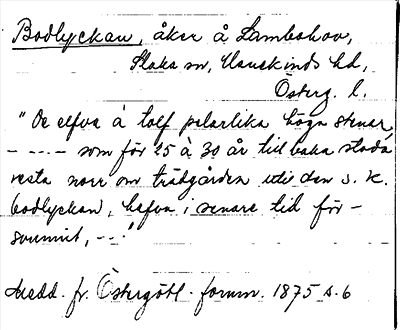 Bodlyckan, åker å Lambohov,
Slaka sn, Hanekinds hd,
Österg. l.
"De elfva à tolf pelarlika höga stenar,
– – – – som för 25 à 30 år tillbaka stodo
resta norr om trädgården uti den s. k.
bodlyckan, hafva i senare tid för-
svunnit, – –."
Medd. fr. Östergötl. fornm. 1875 s. 6